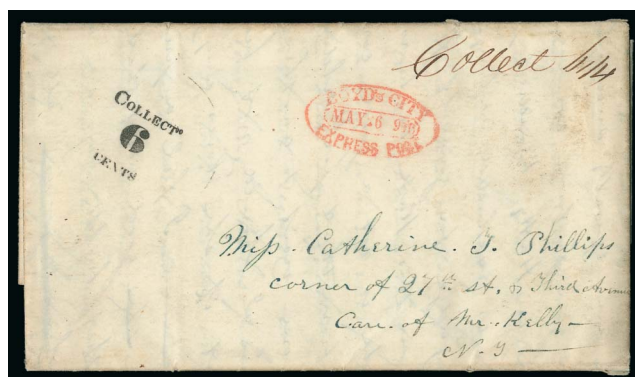 Collect
COLLECT
6
CENTS
BOYD'S CITY
MAY 6
EXPRESS POST
Miss. Catherine. J. Phillips
corner of 27th st, & Third Avenue
Care. of Mr. Kelly—
N. Y —